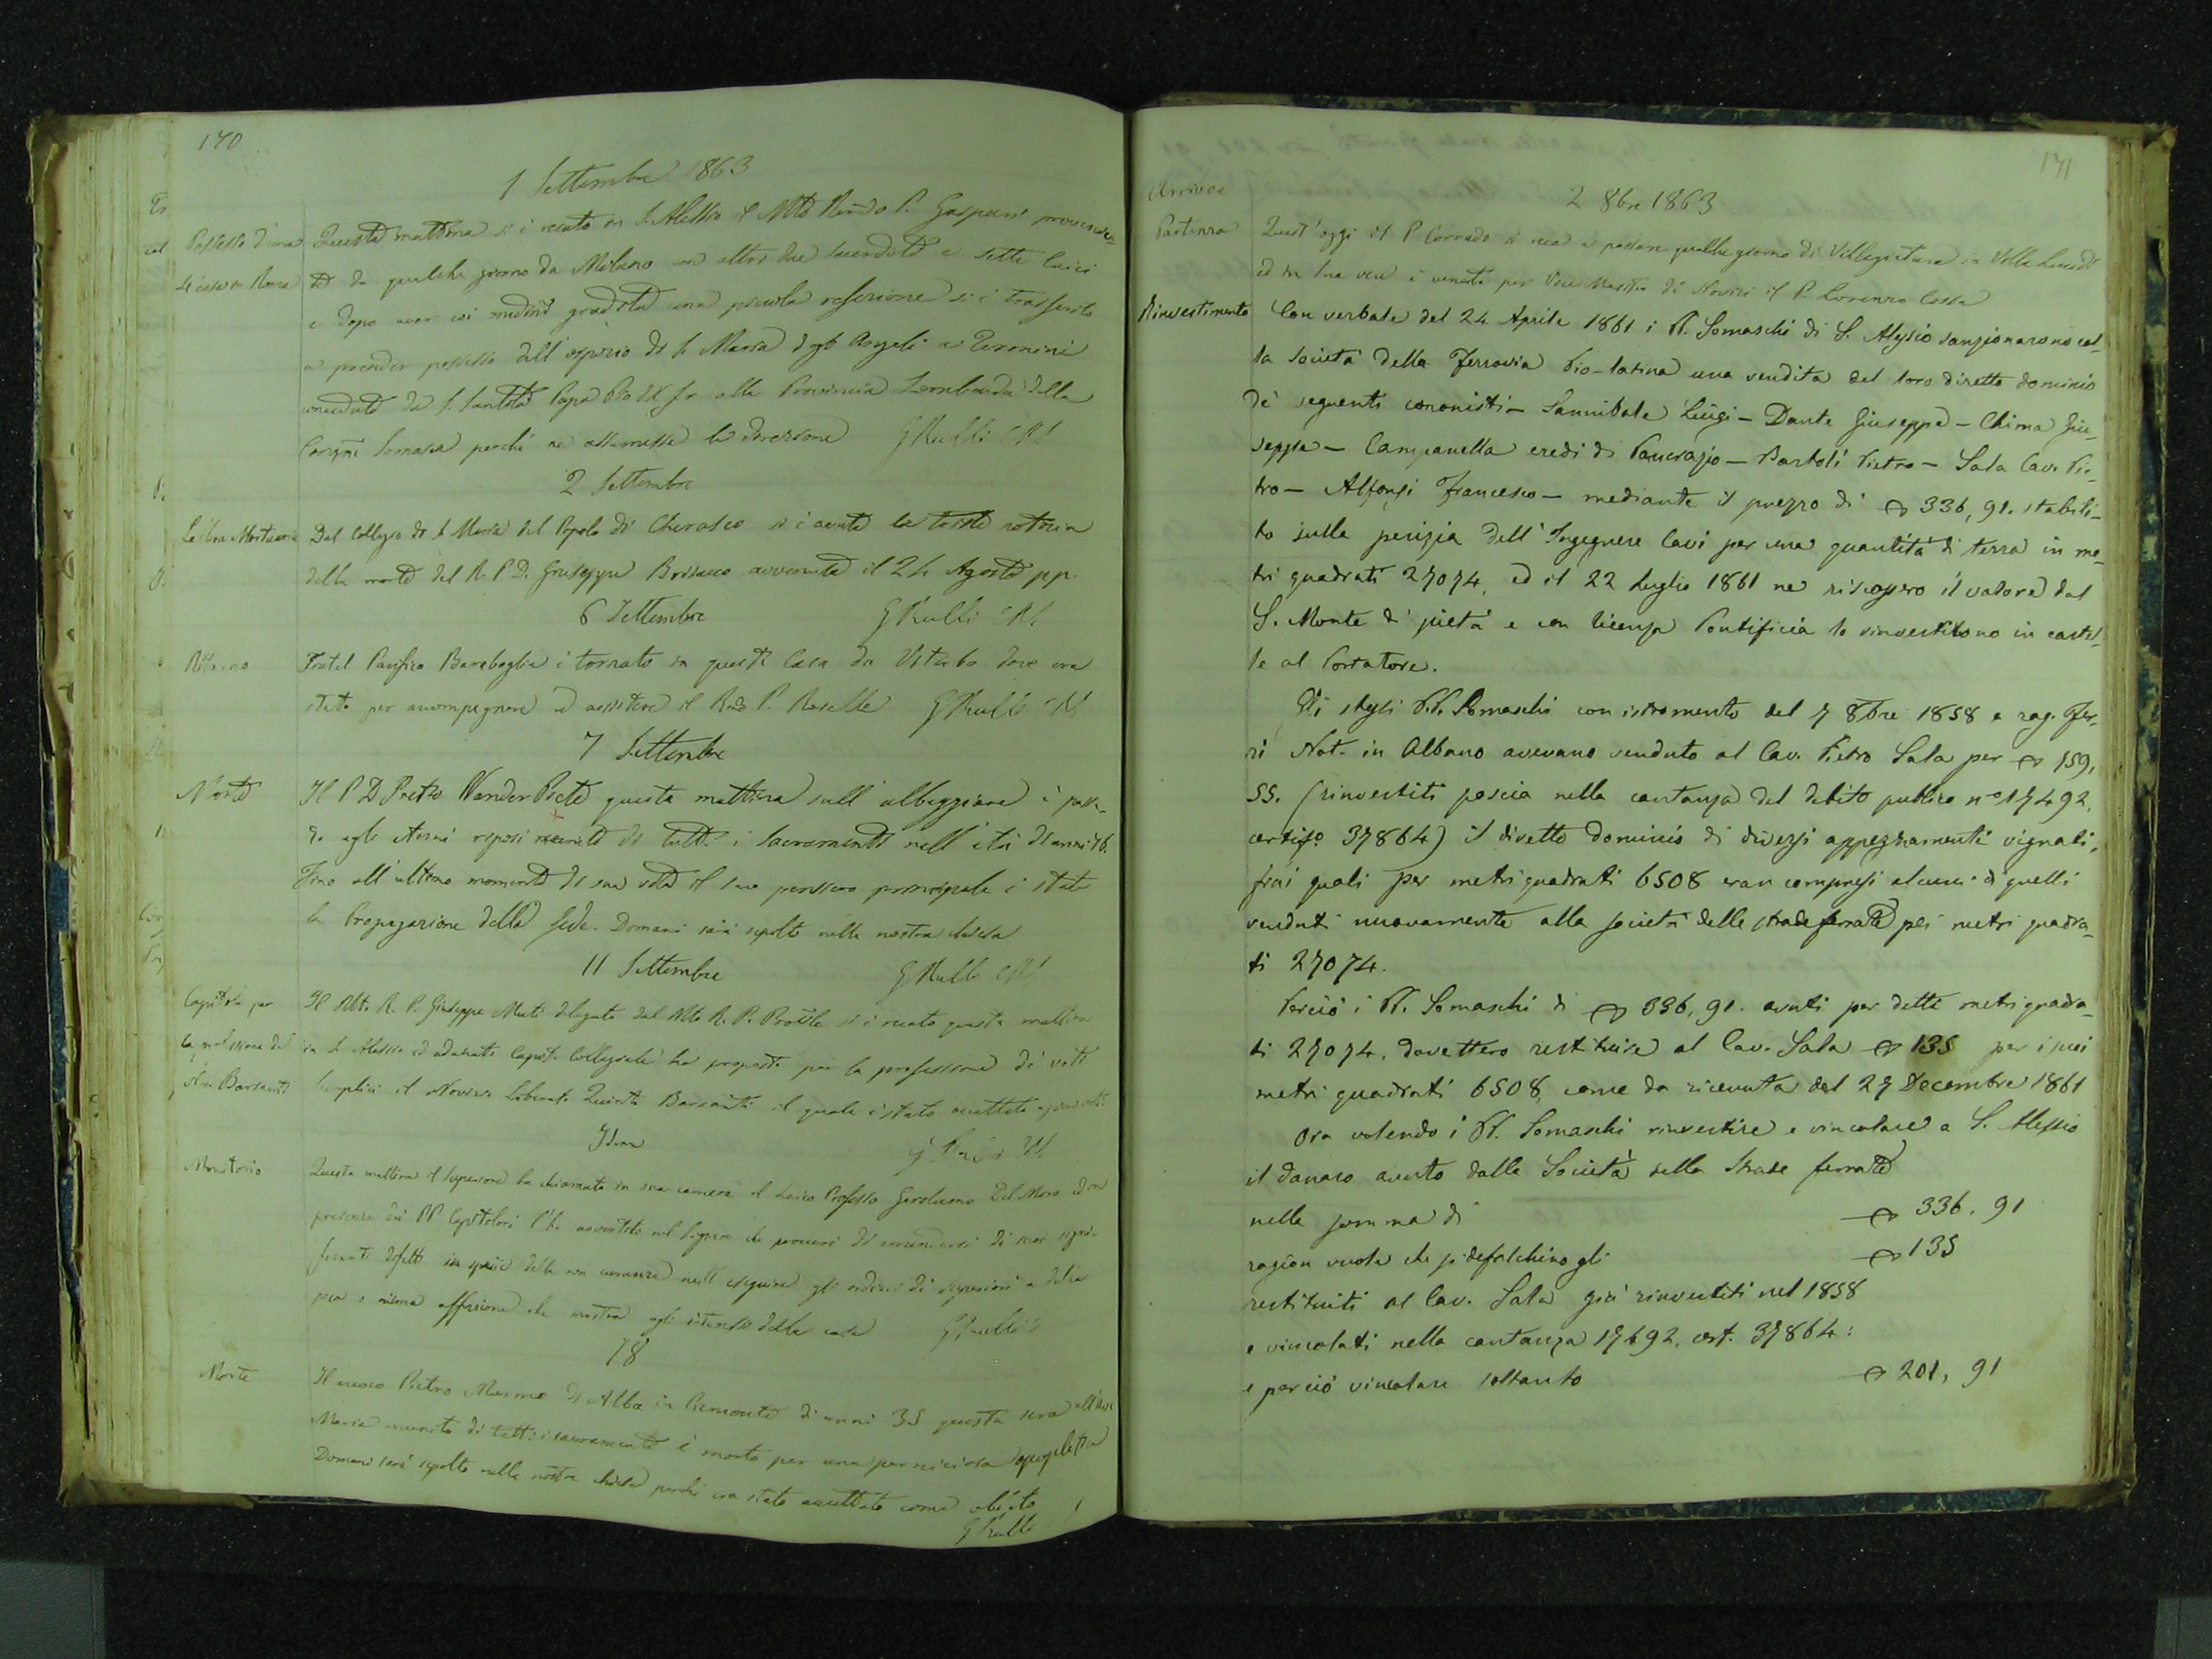 170
1 Settembre 1863
Possesso d'una
4 casa in Roma
Questa mattina si è recato in S. Alessio il Mto Rendo P. Gaspari provenien-
te da qualche giorno da Milano con altri due sacerdoti e sette laici
e dopo aver coi medmi gradita una piccola refezione si è trasferito
a prender possesso dell'ospizio di S. Maria degli Angeli a Termini
conceduto da S. Santità Papa Pio IX alla Provincia Lombarda della
Congne Somasca perché ne assumesse la direzione G Rulli CRS
2 Settembre
Lettera Mortuaria
Dal Collegio di S. Maria del Popolo di Cherasco si è avuta la triste notizia
della morte del R. P. D. Giuseppe avvenuta il 24 Agosto pp.
6 Settembre G Rulli CRS
Ritorno
Fratel Pacifico è tornato in questa Casa da Viterbo dove era
stato per accompagnare ed assistere il Rdo P. Roselle G Rulli CRS
7 Settembre
Morte
Il P D Pietro Vander questa mattina sull'albeggiare è passa-
to agli eterni riposi munito di tutti i Sacramenti nell'età di anni 76.
Fino all'ultimo momento di sua vita il suo pensiero principale è stato
la Propagazione della fede. Domani sarà sepolto nella nostra chiesa
11 Settembre G Rulli CRS
Capitolo per
la professione del
Nov. Barsanti
Il Mto R. P. Giuseppe Muti delegato dal Mto R. P. Prov.le si è recato questa mattina
in S. Alessio ed adunato Capit. Collegiale ha proposto per la professione di voti
semplici il Novizio Liberato Quinto Barsanti il quale è stato accettato a pieni voti
Idem G Rulli
Monitorio
Questa mattina il superiore ha chiamato in sua camera il Laico Professo Gerolamo Del Moro ed in
presenza dei PP Capitolari l'ha avvertito nel Signore che procuri di emendarsi di suoi signi-
ficati difetti in specie della non curanza nell'eseguire gli ordini di superiori e della
poca o niuna affezione che mostra agli interessi della casa G Rulli
18
Morte
Il cuoco Pietro Marme di Alba in Piemonte di anni 35 questa sera all'Ave
Maria munito di tutti i sacramenti è morto per una perniciosa apopletica
Domani sarà sepolto nella nostra chiesa perché era stato accettato come oblato
G Rulli
171
2 8bre 1863
Arrivo e
Partenza
Quest'oggi il P Corrado si reca a passare qualche giorno di Villegiatura in Villa
ed in sua vece è venuto per Vice Maestro di Novizi il P. Lorenzo Cossa
Rinvestimento
Con verbale del 24 Aprile 1861 i PP. Somaschi di S. Alessio sanzionarono col-
la società della Ferrovia Pio-latina una vendita del loro diretto dominio
de' seguenti coronisti - Sannibale Luigi - Dante Giuseppe - Chima Giu-
seppe - Campanella eredi di Pancrazio - Bartoli Pietro - Sala Cav. Pie-
tro - Alfonsi Francesco - mediante il prezzo di 336, 91. stabili-
to sulla perizia dell'Ingegnere Cavi per una quantità di terra in me-
tri quadrati 27074, ed il 22 Luglio 1861 ne riscossero il valore dal
S. Monte di pietà e con licenza Pontificia lo rinvestirono in cartel-
le al Portatore.
Gli stessi P.P. Somaschi con istromento del 7 8bre 1858 a rog. Fer-
ri Not. in Albano avevano venduto al Cav. Pietro Sala per 159,
55. (rinvestiti poscia nella cartanza del debito publico n° 17492,
certifo 37864) il diretto dominio di diversi appezzamenti vignati,
frai quali per metri quadrati 6508 eran compresi alcuni di quelli
venduti nuovamente alla società delle strade ferrate pei metri quadra-
ti 27074.
Perciò i PP. Somaschi di 336, 91. avuti per detti metri quadra-
ti 27074, dovettero restituire al Cav. Sala 135 per i suoi
metri quadrati 6508, come da ricevuta del 27 Decembre 1861
Ora volendo i PP. Somaschi rinvestire e vincolare a S. Alessio
il danaro avuto dalla Società delle Strade ferrate
nella somma di 336, 91
ragion vuole che si defalchino gli 135
restituiti al Cav. Sala già rinvestiti nel 1858
e vincolati nella cartanza 17492. cert. 37864:
e perciò vincolare soltanto 201, 91